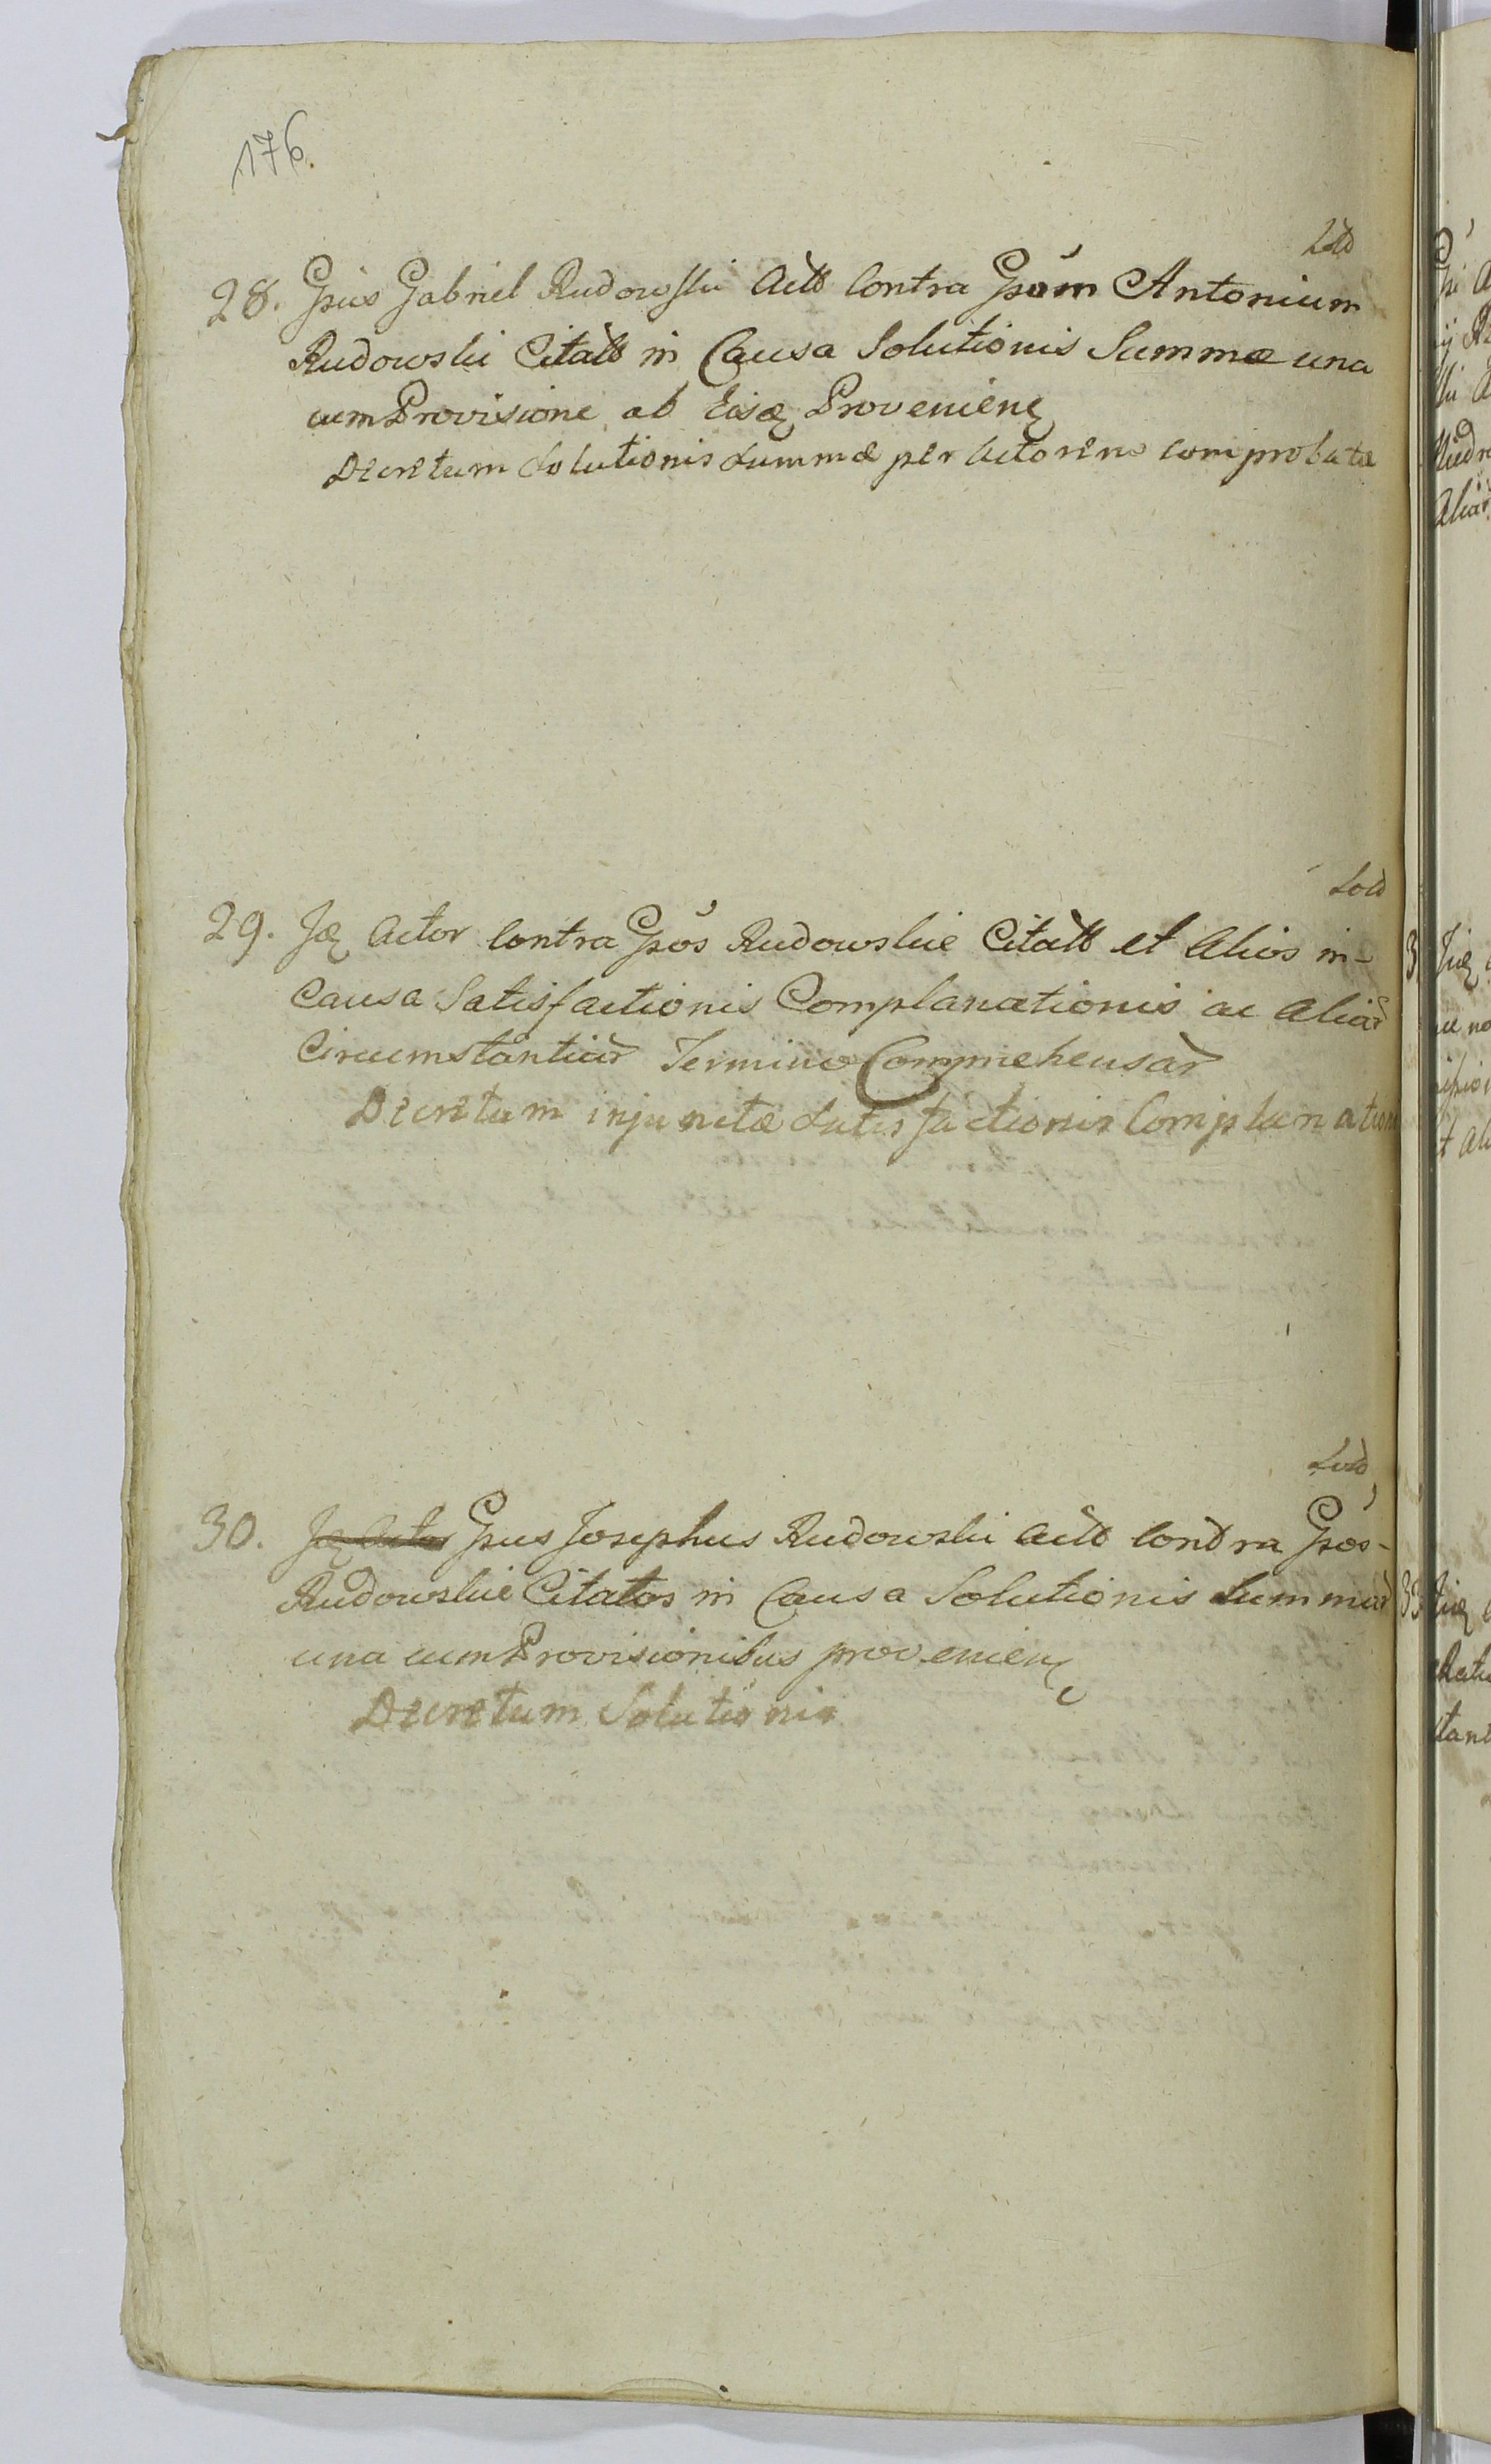 176.
28. Gsus Gabriel Rudowski Actt Contra Gsum Antonium
Rudowski Citatt in Causa Solutionis Summæ una
cum Provisione ab Eisq Provenienq
Decretum Solutionis Summæ per Actorem comprobatæ
Sold
29. Jq Actor Contra Gsos Rudowskie Citatt et Alios in-
Causa Satisfactionis Complanationis ac Aliar
Circumstantiar Termino Comprehensar
Decretum injunctæ Satisfactionis Complanation
Sold
30. Jq Actor Gsus Josephus Rudowski Actt Contra Gsos-
Rudowskie Citatos in Causa Solutionis Summar
una cum Provisionibus provenienq
Decretum Solutionis